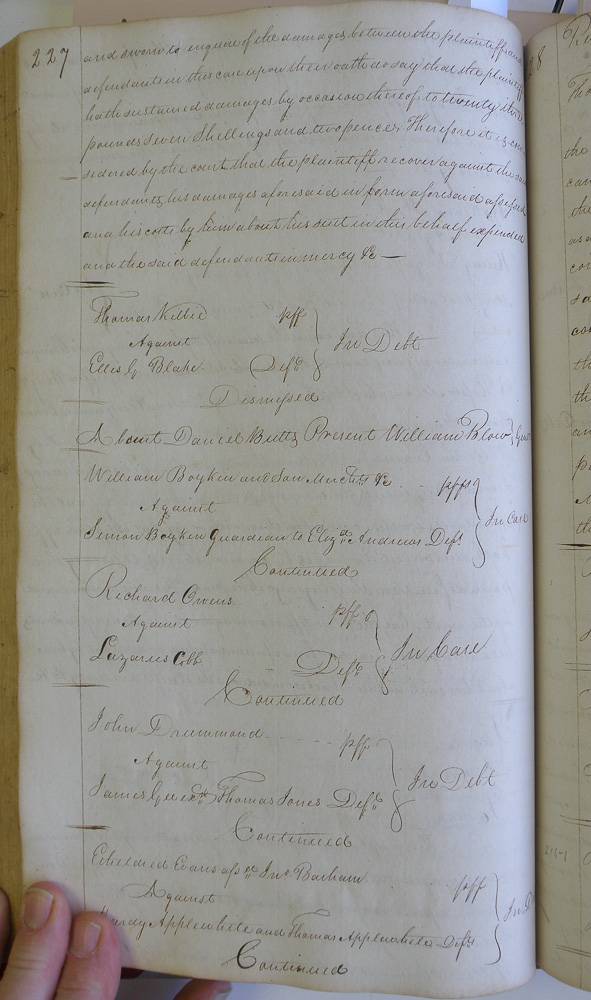 227
and sworn to enquire of the damages between the plaintiff and
defendants in this case upon their oath do say that the plaintiff
hath sustained damages by occasion thereof to twenty three
pounds seven Shellings and two pences Therefore it is con
sedered by the court that the plaintiff recover against the said
defendants his damages aforesaid in form aforesaid assessed
and his costs by him about his suit in this behalf expended
and the said defendants in mercy &c
Thomas Kelbie pff
Against In Debt
Ellis G Blake Deft
Dismissed
Absent Daniel Butts Present William Blow
William Boykin and &c pffs
Against In Case
Simon Boykin Guardian to Eliza Andrews Deft
Continued
Richard Owens pff
Against In Case
Lazarus Cobb Deft
Continued
John Drummond pff
Against In Debt
James Thomas Jones Deft
Continued
Etheldred Evans asse Jno Barham pff
Against
Hardy Applewhite and Thomas Applewhite Defts
Continued